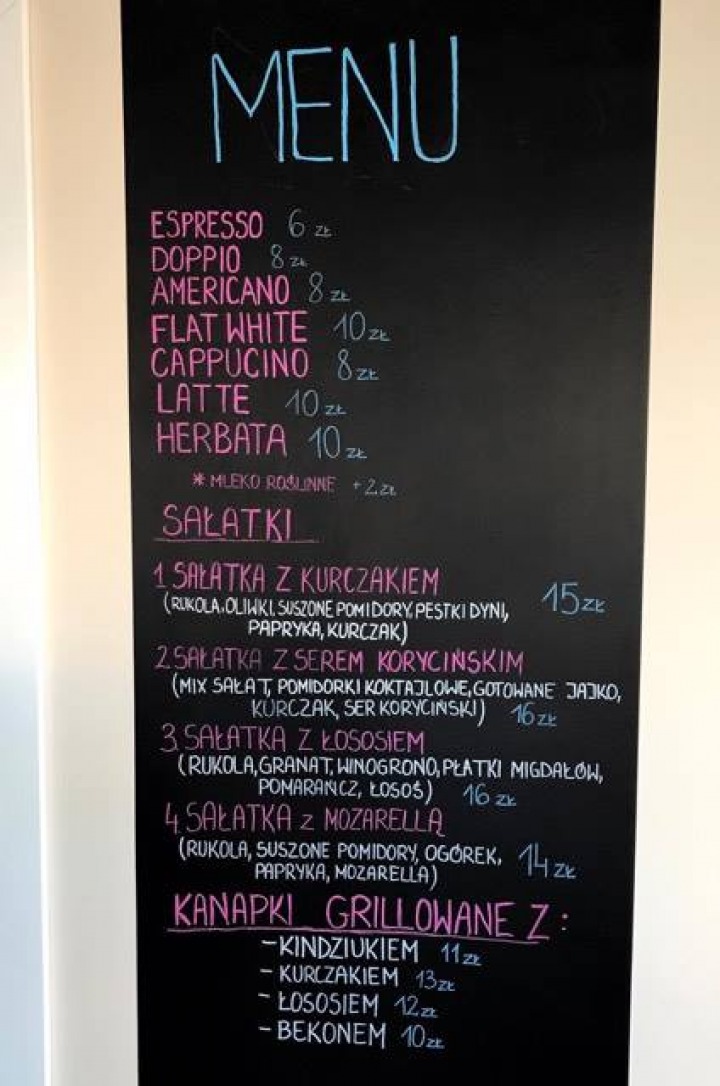 MENU
ESPRESSO 6 ZŁ
DOPPIO 8 ZŁ
AMERICANO 8 ZŁ
FLAT WHITE 10 ZŁ
CAPPUCINO 8 ZŁ
LATTE 10 ZŁ
HERBATA 10 ZŁ
* MLEKO ROŚLINNE +2 ZŁ
SAŁATKI
1. SAŁATKA Z KURCZAKIEM 15 ZŁ
(RUKOLA, OLIWKI, SUSZONE POMIDORY, PESTKI DYNI,
PAPRYKA, KURCZAK)
2. SAŁATKA Z SEREM KORYCIŃSKIM
(MIX SAŁAT, POMIDORKI KOKTAJLOWE, GOTOWANE JAJKO,
KURCZAK, SER KORYCIŃSKI) 16 ZŁ
3. SAŁATKA Z ŁOSOSIEM
(RUKOLA, GRANAT, WINOGRONO, PŁATKI MIGDAŁÓW,
POMARAŃCZ, ŁOSOŚ) 16 ZŁ
4. SAŁATKA Z MOZARELLĄ
(RUKOLA, SUSZONE POMIDORY, OGÓREK, 14 ZŁ
PAPRYKA, MOZARELLA)
KANAPKI GRILLOWANE Z :
- KINDZIUKIEM 11 ZŁ
- KURCZAKIEM 13 ZŁ
- ŁOSOSIEM 12 ZŁ
- BEKONEM 10 ZŁ